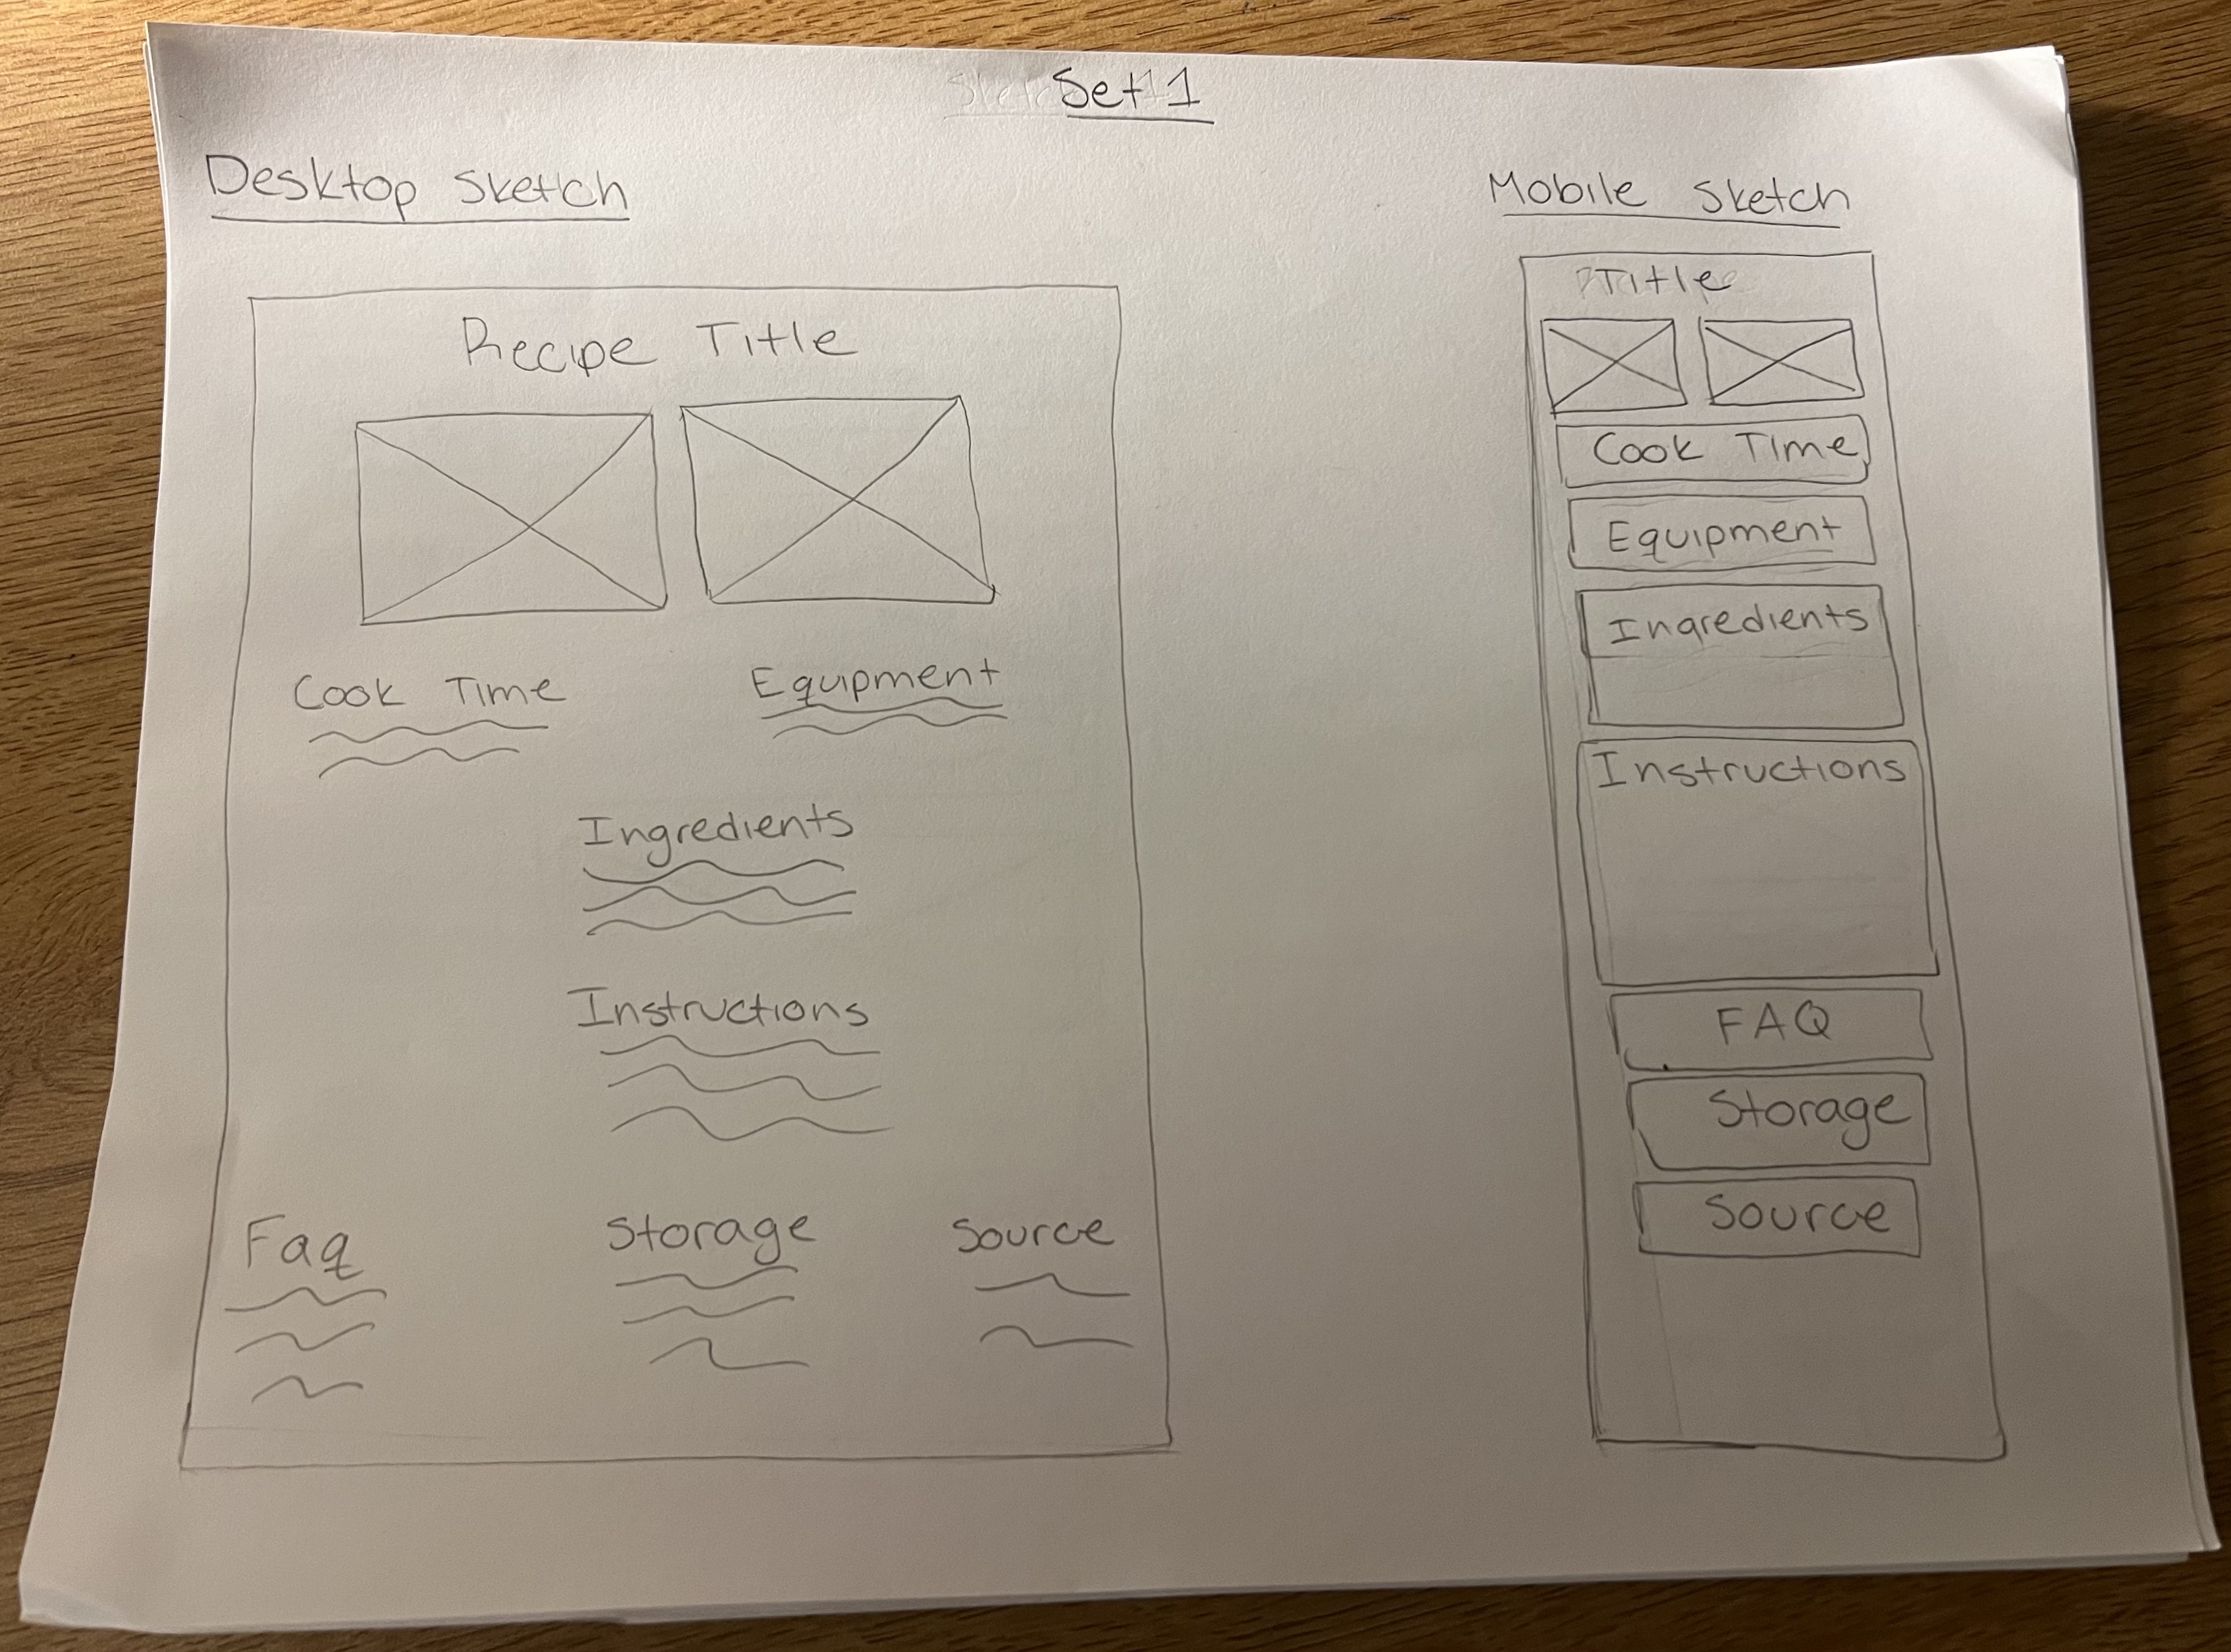 Set 1
Desktop Sketch
Recipe Title
Cook Time
Equipment
Ingredients
Instructions
Faq
Storage
Source
Mobile Sketch
Title
Cook Time
Equipment
Ingredients
Instructions
FAQ
Storage
Source